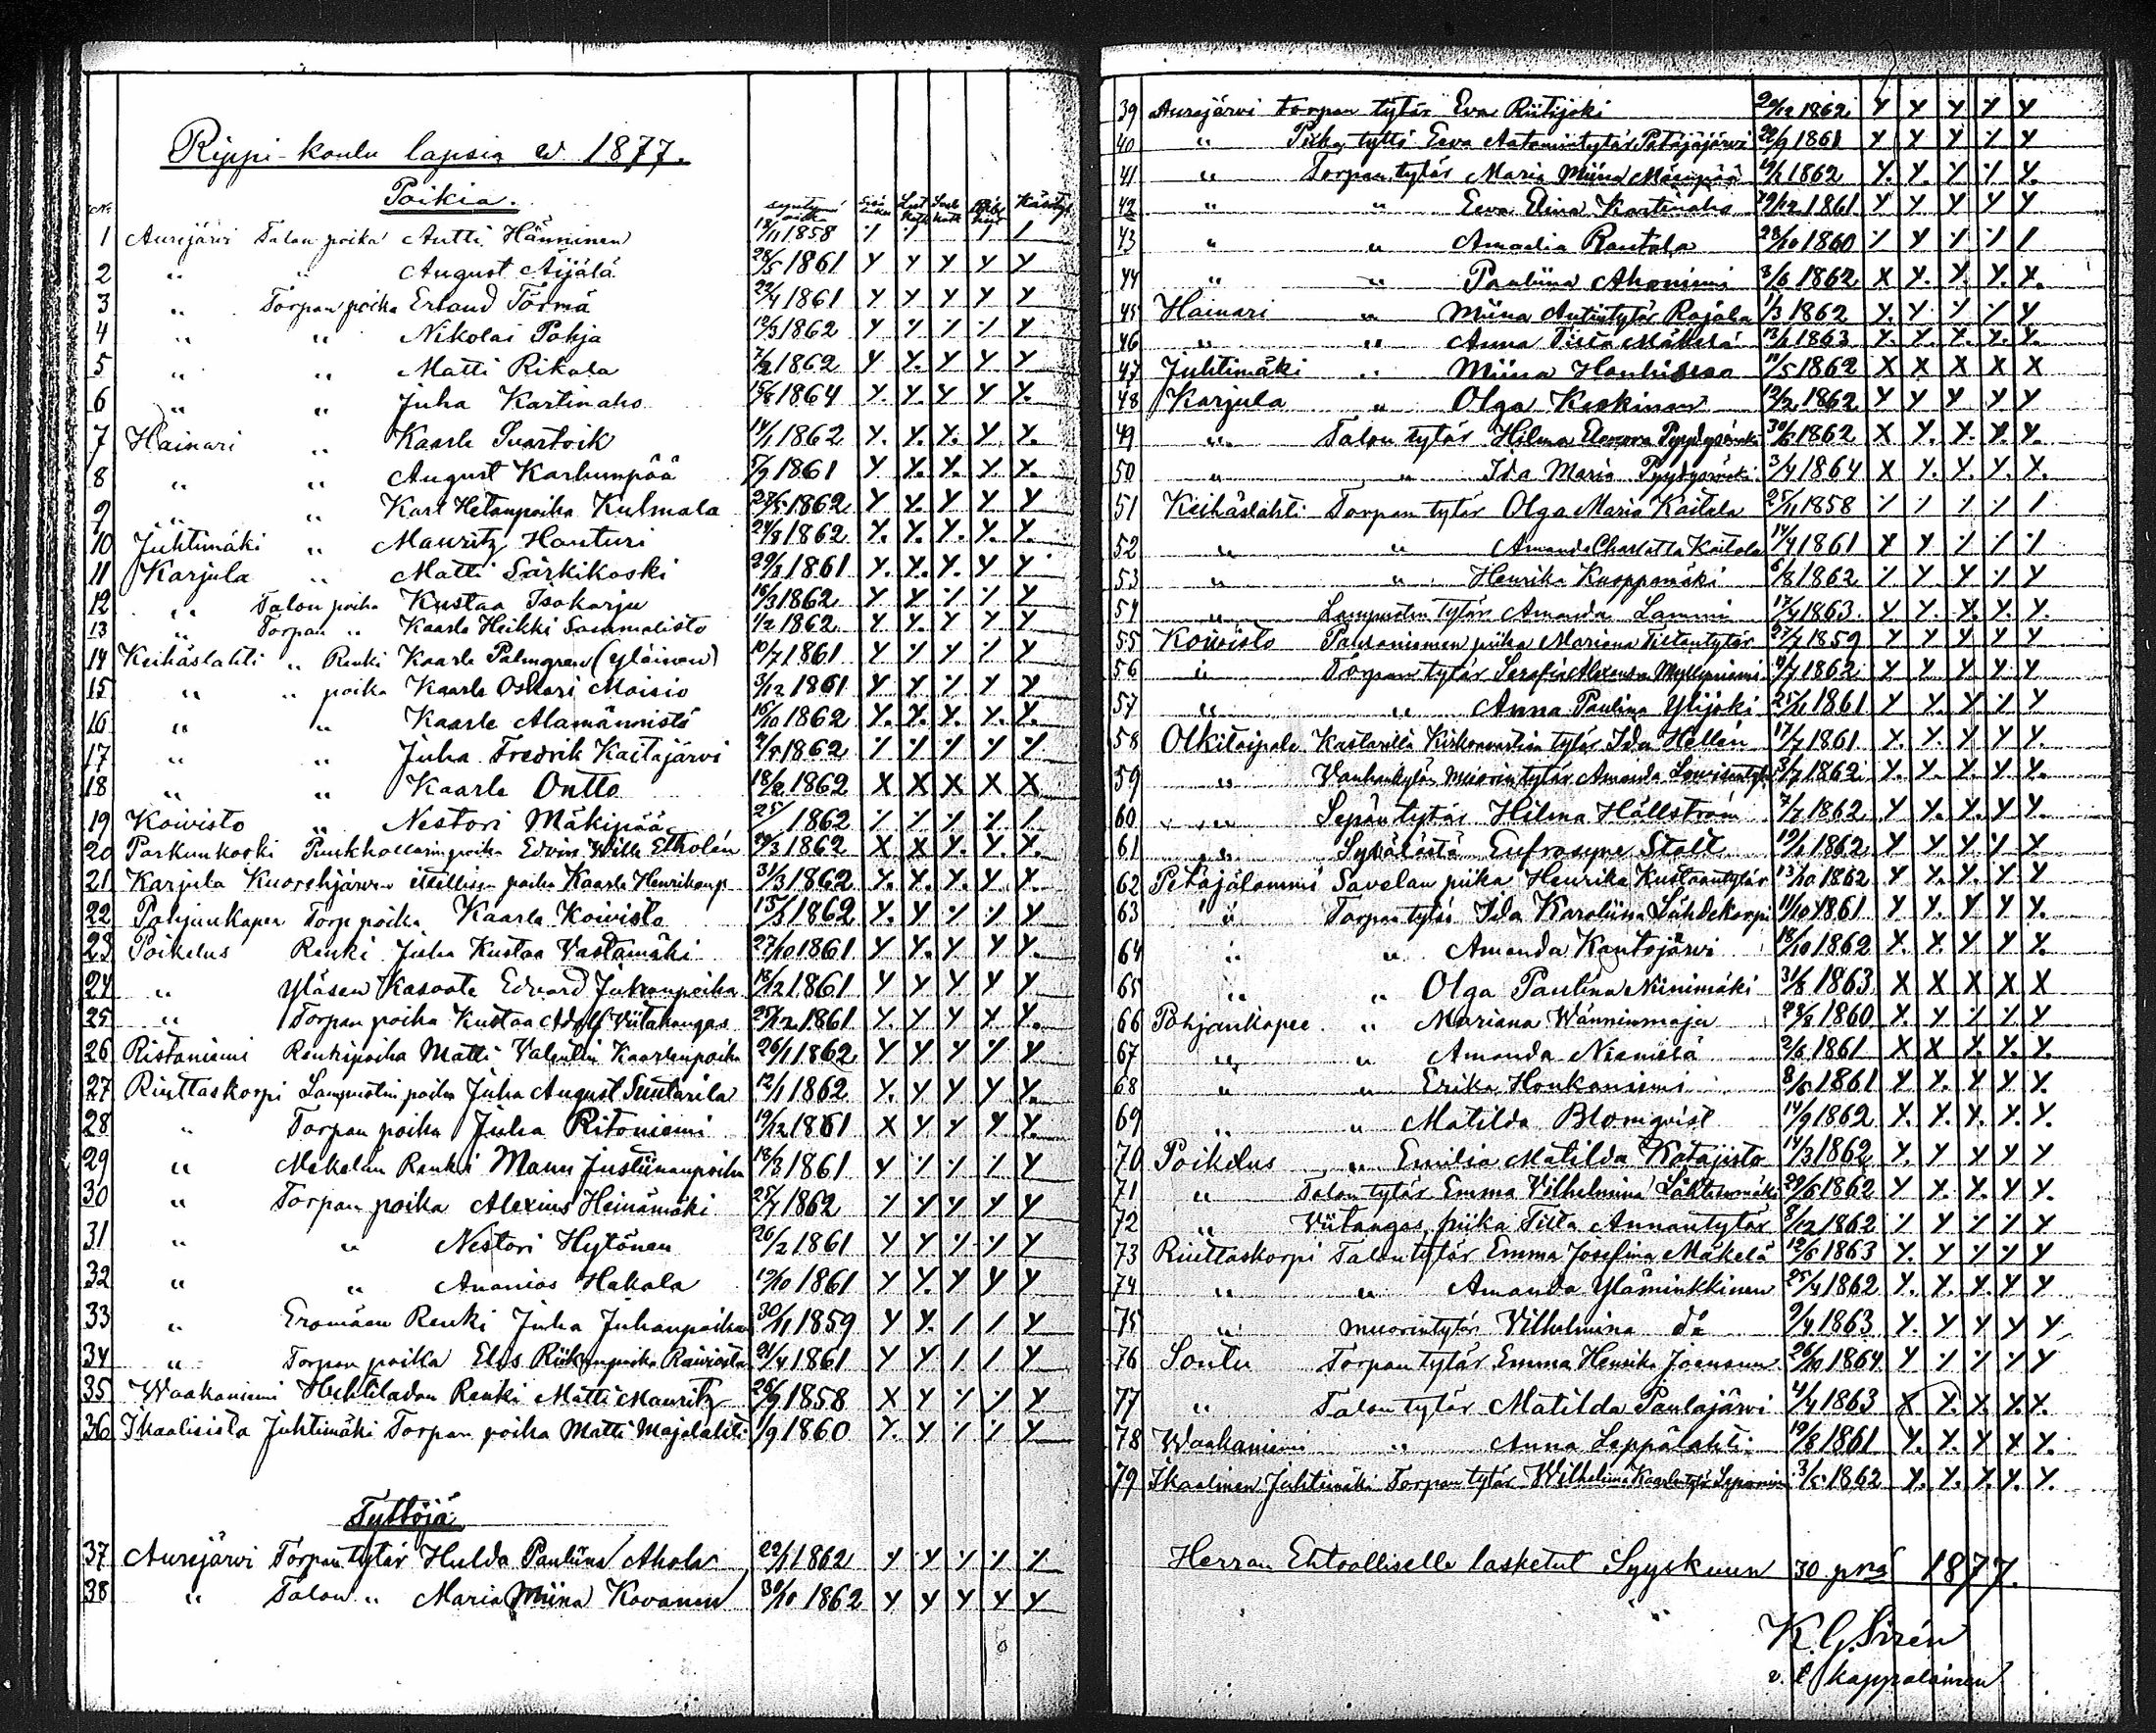 Rippi-koulu lapsia w 1877.
Poikia.
No syntymä päiwä Kat Käsitys
1 Aurejärwi Talon poika Antti Hänninen 18/11 1858
2 " " August Äijälä 28/5 1861 Y Y Y Y Y
3 " Torpan poika Erland Törmä 22/4 1861 Y Y Y Y Y
4 " " Nikolai Pohja 12/3 1862 Y
5 " " Matti Rikala 1862 Y Y. Y Y Y
6 " " Juha Kartinaho 15/8 1864 Y. Y. Y Y Y.
7 Hainari " Kaarle Svartvik 14/1 1862 Y. Y. Y. Y. Y.
8 " " August Karhunpää 5/9 1861 Y Y. Y. Y. Y.
9 " " Karl Hetanpoika Kulmala 28/5 1862 Y Y. Y Y Y
10 Juhtimäki " Mauritz Hanturi 24/8 1862 Y. Y. Y. Y. Y.
11 Karjula " Matti Särkikoski 1861 Y. Y. Y. Y Y
12 " Talon poika Kustaa Isokarju 16/3 1862 Y Y
13 " Torpan " Kaarle Heikki Sammalisto 1/2 1862 Y Y. Y Y Y
14 Keihäslahti " Renki Kaarle Palmgren (Yläinen) 10/7 1861
15 " " poika Kaarle Oskari Moisio 3/12 1861 Y Y
16 " " Kaarle Alamännistö 16/10 1862 Y. Y. Y. Y. Y.
17 " " Juha Fredrik Kaitajärvi 1862
18 " " Kaarle Ontto 18/2 1862 X X X X X
19 Koiwisto " Nestori Mäkipää 25/ 1862
20 Parkunkoski poika Edvin Wilh Etholén 1862 X X Y. Y. Y.
21 Karjula Kuorehjärwen itsellisen poika Kaarle Henrikinp 31/3 1862 Y. Y. Y. Y. Y.
22 Pohjankapee Torp poika Kaarle Koiwisto 15/3 1862 Y. Y
23 Poikelus Renki Juha Kustaa Vastamäki 27/10 1861 Y Y. Y Y Y
24 " Yläsen Kasvate Edvard Juhanpoika 18/12 1861 Y Y Y Y Y
25 " Torpan poika Kustaa Adolf Viitakangas 25/12 1861 Y. Y Y Y Y.
26 Ristaniemi Renkipoika Matti Valentin Kaarlenpoika 26/1 1862 Y Y Y Y Y
27 Riuttaskorpi Lampuotin poika Juha August Suutarila 12/1 1862 Y. Y. Y Y Y.
28 " Torpan poika Juha Ritoniemi 19/12 1861 X Y Y Y Y.
29 " Mäkelän Renki Manu Justiinanpoika 18/3 1861
30 " Torpan poika Alexius Heinämäki 25/7 1862
31 " " Nestori Hytönen 20/2 1861
32 " " Ananias Hakala 19/10 1861 Y Y. Y Y Y
33 " Eromäen Renki Juha Juhanpoika 30/11 1859 Y Y. / / Y
34 " Torpan poika Elis Riikanpoika 21/4 1861 Y Y / / Y
35 Waakaniemi Huhtiladon Renki Matti Mauritz 26/9 1858 X Y
36 Ikaalisista Juhtimäki Torpan poika Matti Majalahti 1/9 1860
Tyttöjä
37 Aurejärwi Torpan tytär Hulda Pauliina Ahola 22/1 1862
38 " Talon " Maria Miina Kovanen 30/10 1862 Y Y Y Y Y
39 Aurejärwi torpan tytär Eva Riitijoki 20/12 1862 Y Y Y Y Y
40 " Piika tyttö Eeva Aatamintytär Petäjäjärvi 22/9 1861
41 " Torpan tytär Maria Miina Mäenpää 1862
42 " " Eeva Elina Kartinaho 19/12 1861 Y Y Y Y Y
43 " " Amalia Rantala 28/10 1860
44 " " Pauliina Ahoniemi 3/6 1862 X Y. Y. Y. Y.
45 Hainari " Miina Antintytär Rajala 1/3 1862
46 " " Anna Tiilta Mäkelä 1863 Y. Y. Y. Y. Y.
47 Juhtimäki " Miina Hauhiseea 11/5 1862 X X X X X
48 Karjula " Olga Keskinen 12/2 1862 Y Y Y Y Y
49 " Talon tytär Hilma Eleonora Pyydysmäki 30/6 1862 X Y. Y. Y. Y.
50 " " Ida Maria 3/4 1864 X Y. Y. Y. Y.
51 Keihäslahti Torpan tytär Olga Maria Kaitala 25/11 1858
52 " " Amanda Charlotta Kaitala 14/4 1861
53 " " Henrika Kuoppamäki 6/8 1862
54 " Lampuotin tytär Amanda Lammi 17/4 1863 Y. Y. Y. Y. Y.
55 Koiwisto piika Mariana Tiltantytär 27/7 1859 Y Y Y Y Y
56 " Torpan tytär Serafia Alexandra Myllyniemi 1862 Y Y. Y Y Y
57 " " Anna Paulina Ylijoki 25/11 1861
58 Olkitaipale Kirkonvartian tytär Ida Hellén 17/7 1861 Y. Y. Y. Y Y.
59 " Vanhankylän Muorin tytär Amanda 3/7 1862 Y. Y. Y. Y. Y.
60 " Sepän tytär Hilma Hällström 7/7 1862 Y. Y. Y. Y. Y.
61 " Eufrosyne Stolt 1862 Y Y Y Y Y
62 Petäjälammi Savelan piika Henrika Kustaantytär 13/10 1862 Y Y. Y. Y Y.
63 " Torpan tytär Ida Karoliina Lähdekorpi 11/10 1861 Y Y. Y Y Y.
64 " " Amanda Kantojärvi 18/10 1862 Y. Y. Y Y Y.
65 " " Olga Paulina Niinimäki 31/8 1863 X X X X X
66 Pohjankapee " Mariana Wänninmaja 28/8 1860
67 " " Amanda Niemelä 2/6 1861 X X Y. Y. Y.
68 " " Erika Honkaniemi 8/6 1861 Y Y. Y Y Y.
69 " " Matilda Blomqvist 14/9 1862 Y. Y. Y. Y. Y.
70 Poikelus " Emilia Matilda Katajisto 14/3 1862 Y. Y Y Y Y
71 " Talon tytär Emma Vilhelmina 29/6 1862 Y Y. Y. Y Y.
72 " Viitangas piika Tilta Annantytär 8/12 1862
73 Riuttaskorpi Talon tytär Emma Josefina Mäkelä 12/6 1863 Y. Y Y Y Y
74 " " Amanda Yläminkkinen 25/4 1862 Y. Y. Y. Y Y
75 " muorintytär Vilhelmina d:o 9/4 1863 Y. Y Y Y Y
76 Soutu Torpan tytär Emma Henrika Joensuu 26/10 1864
77 " Talon tytär Matilda Paulajärvi 4/4 1863 X Y. Y. Y. Y.
78 Waakaniemi " Anna Leppälahti 19/8 1861 Y. Y. Y. Y Y.
79 Ikaalinen Juhtimäki Torpan tytär Wilhelmina Kaarlentytär 3/5 1862 Y. Y. Y. Y. Y.
Herran Ehtoolliselle lasketut Syyskuun 30 pnä 1877.
K. G. Sirén
v. t. kappalainen